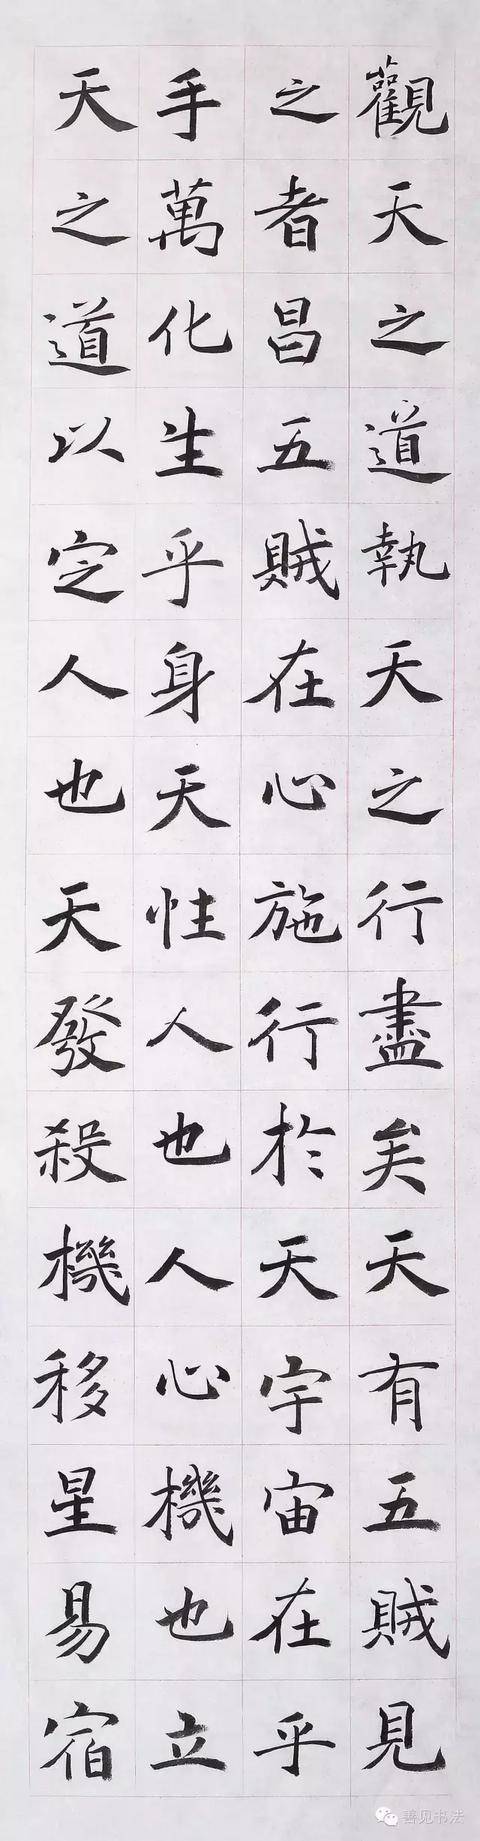 觀天之道執天之行盡矣天有五賊見
之者昌五賊在心施行於天宇宙在乎
手萬化生乎身天性人也人心機也立
天之道以定人也天發殺機移星易宿
善见书法